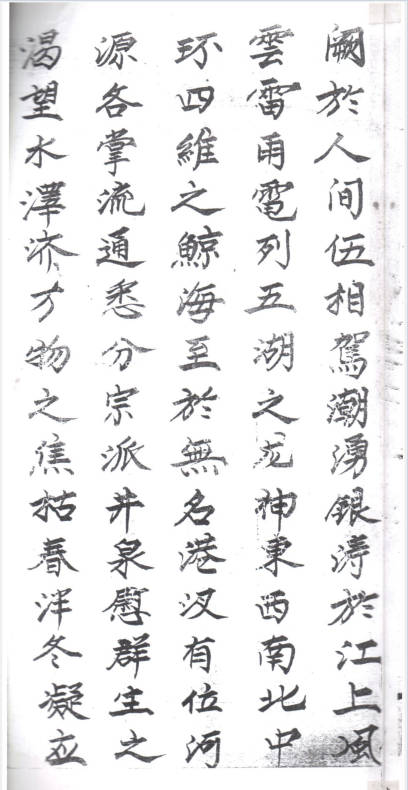 闕於人间伍相駕潮湧銀涛於江上风
雲雷雨電列五湖之龙神東西南北中
环四維之鯨海至於無名港汊有位河
源各掌流通悉分宗派井泉慰群生之
渴望水澤济万物之焦枯春泮冬凝立